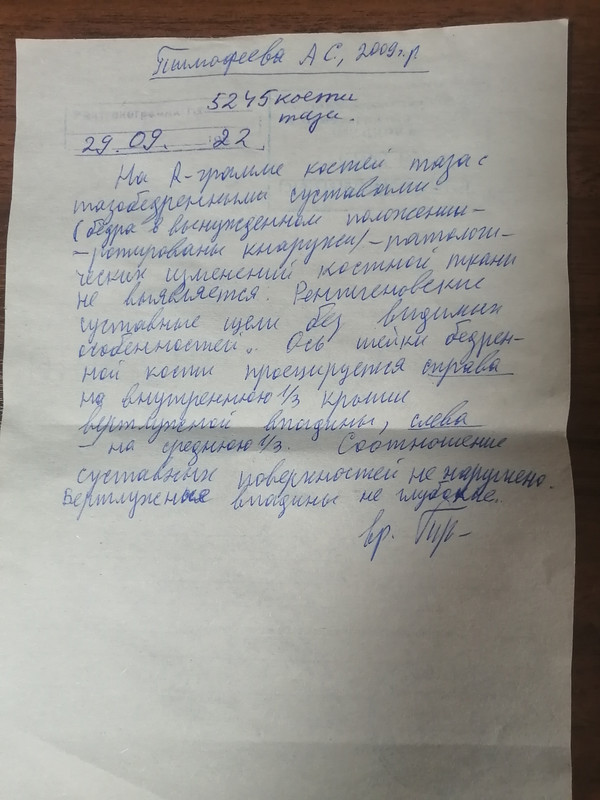 Тимофеева А С, 2009 г.р
5245 кости
таза.
29. 09. 22
На R-грамме костей таза с
тазобедренными суставами
(бедра в вынужденном положении-
-ротированы кнаружи/-патологи-
ческих изменений костной ткани
не выявляется. Рентгеновские
суставные щели без видимых
особенностей. Ось шейки бедрен-
ной кости проецируется справа
на внутреннюю 1/3 крыши
вертлужной впадины, слева
- на среднюю 1/3. Соотношение
суставных поверхностей не нарушено.
Вертлужные впадины не глубокие.
вр.